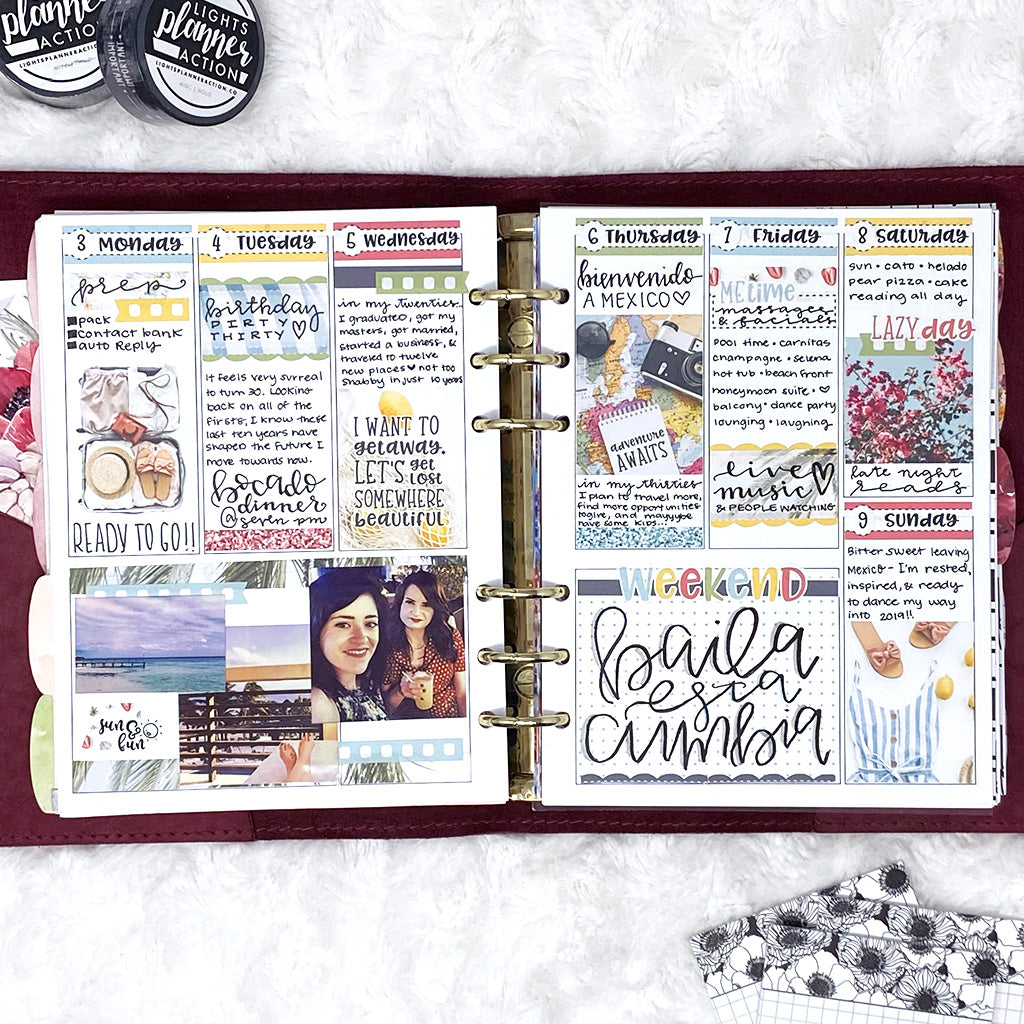 planner
ACTION
LIGHTSPLANNERACTION.CO
LIGHTS
planner
ACTION
LIGHTSPLANNERACTION.CO
MISC | HOLO
IMPORTANT
3 MONDAY
prep
pack
contact bank
auto Reply
READY TO GO!!
4 TUESDAY
birthday
DIRTY
THIRTY
It feels very surreal
to turn 30. Looking
back on all of the
firsts, I know these
last ten years have
shaped the future I
move towards now.
bocado
dinner
@ seven pm
5 WEDNESDAY
in my twenties...
I graduated, got my
masters, got married,
started a business, &
traveled to twelve
new places ♥ not too
shabby in just 10 years
I WANT TO
getaway.
LET'S get
lost
SOMEWHERE
beautiful
sun &
fun
6 THURSDAY
bienvenido
A MEXICO ♡
adventure
AWAITS
in my thirties
I plan to travel more,
find more opportunities
to give, and maayyybe
have some kids...
7 FRIDAY
ME time
massages
& facials
pool time • carnitas
champagne • selena
hot tub • beach front
honeymoon suite • ♥
balcony • dance party
lounging • laughing
live
music ♡
& PEOPLE WATCHING
8 SATURDAY
sun • cato • helado
pear pizza • cake
reading all day
LAZY day
late night
reads
9 SUNDAY
Bitter sweet leaving
Mexico - I'm rested,
inspired, & ready
to dance my way
into 2019!!
WEEKEND
baila
esta
cumbia